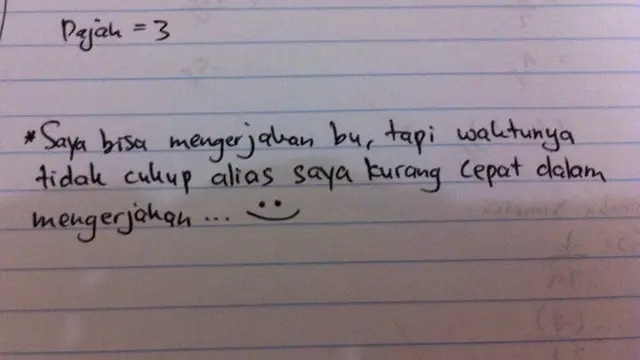 Pajak = 3
*Saya bisa mengerjakan bu, tapi waktunya
tidak cukup alias saya kurang cepat dalam
mengerjakan...